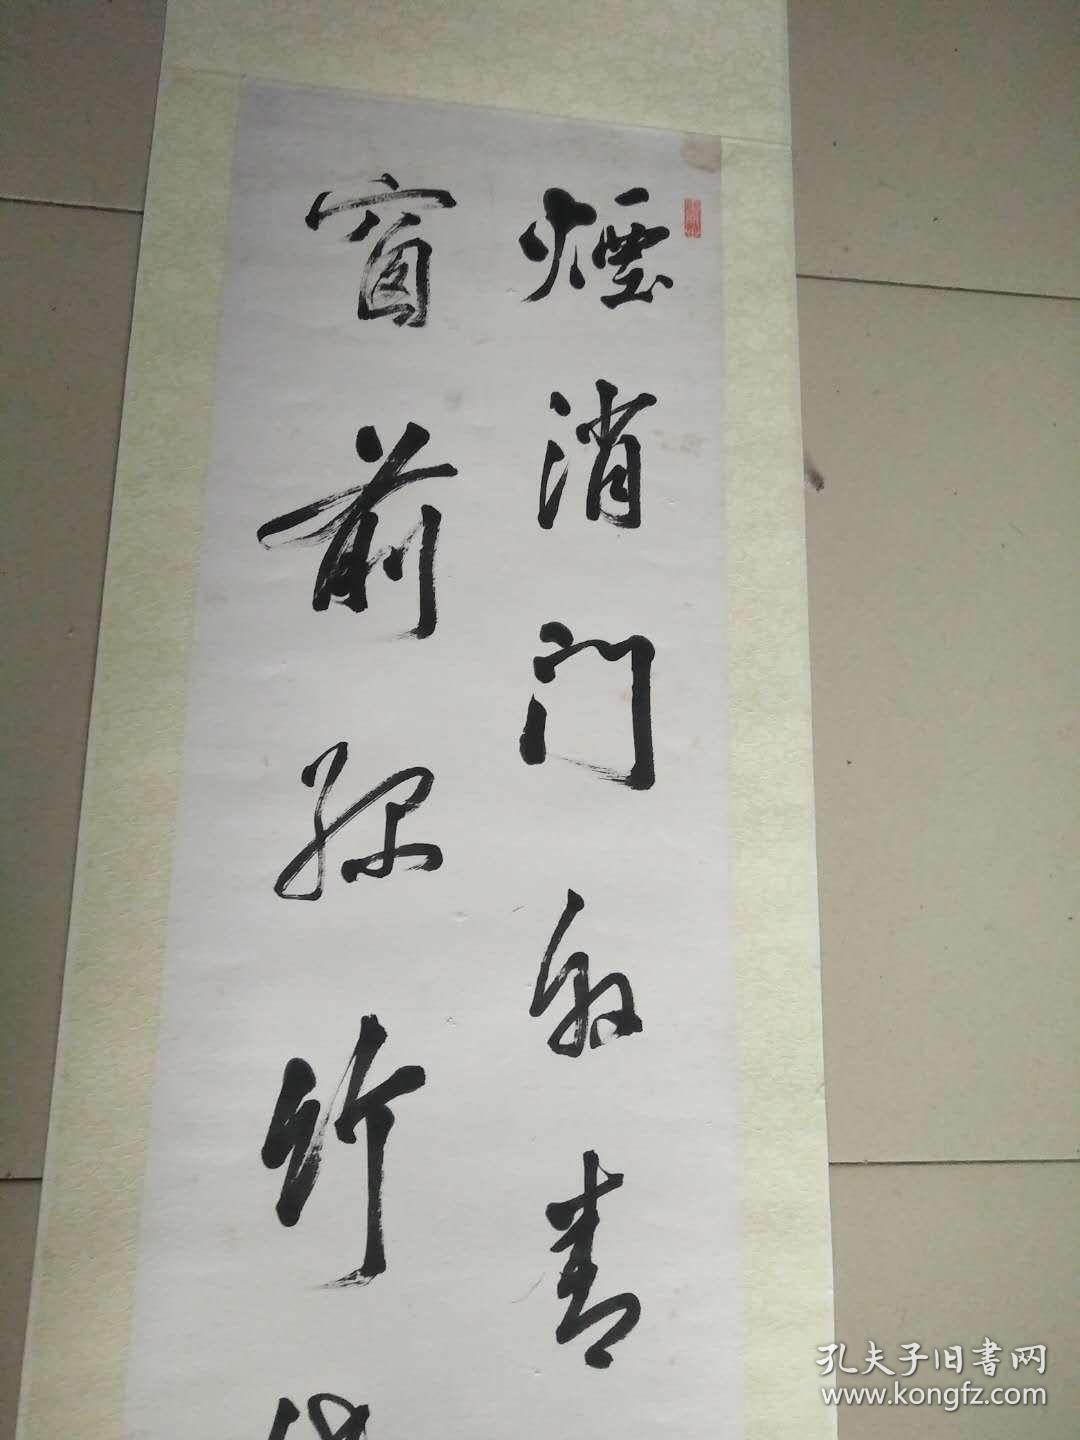 煙消门外青
窗前绿竹
孔夫子旧书网
www.kongfz.com